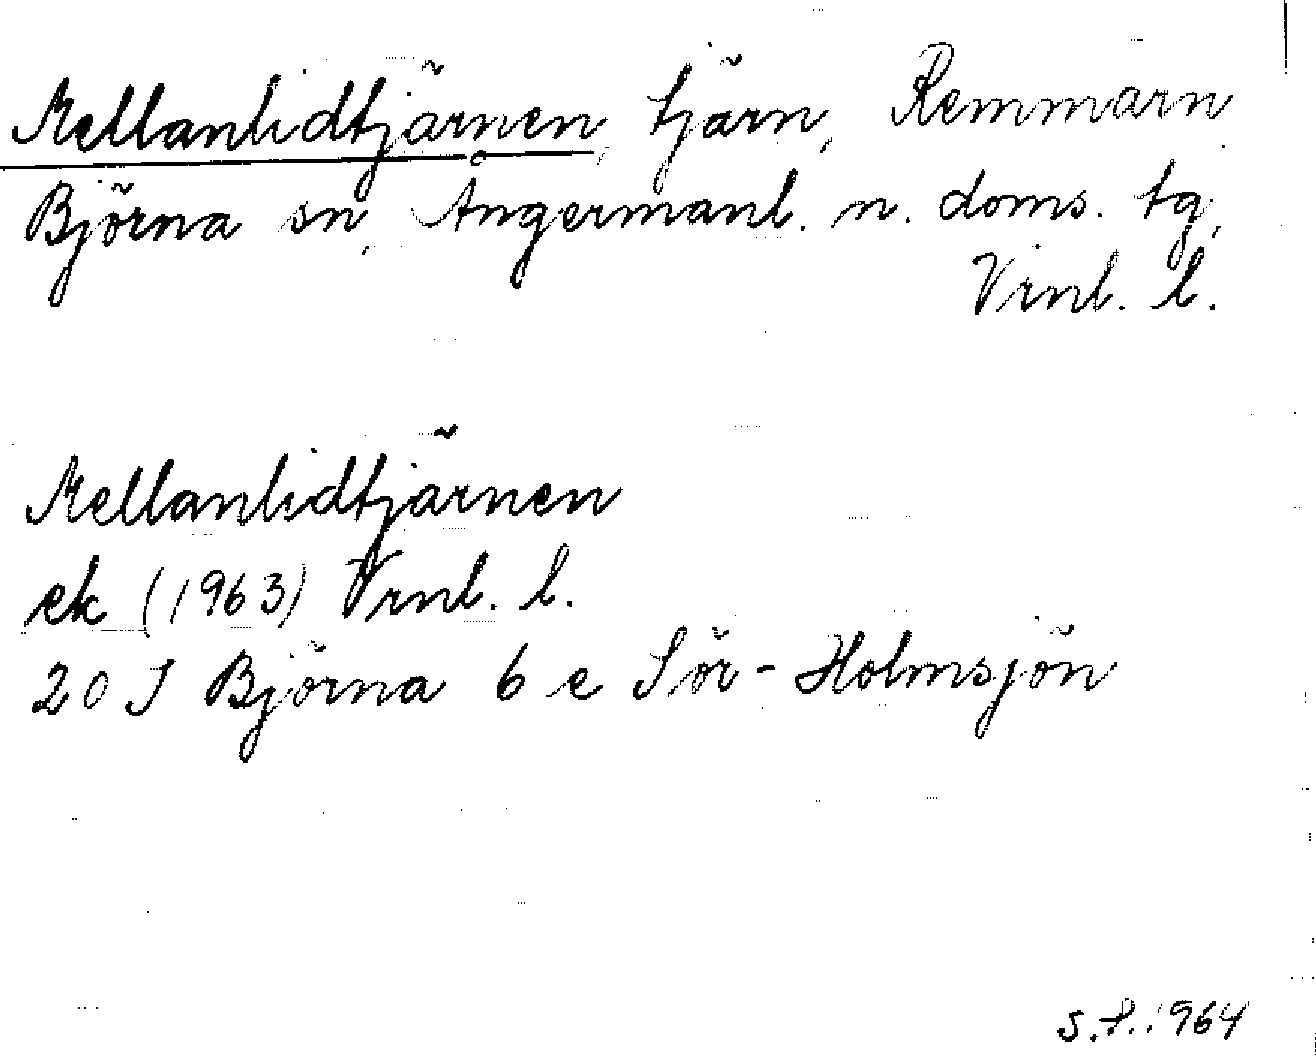 Mellanlidtjärnen, tjärn, Remmarn
Björna sn, Ångermanl. n. doms. tg,
Vrnl. l.
Mellanlidtjärnen
ek (1963) Vrnl. l.
20 J Björna 6 e Sör-Holmsjön
S.P. 1964